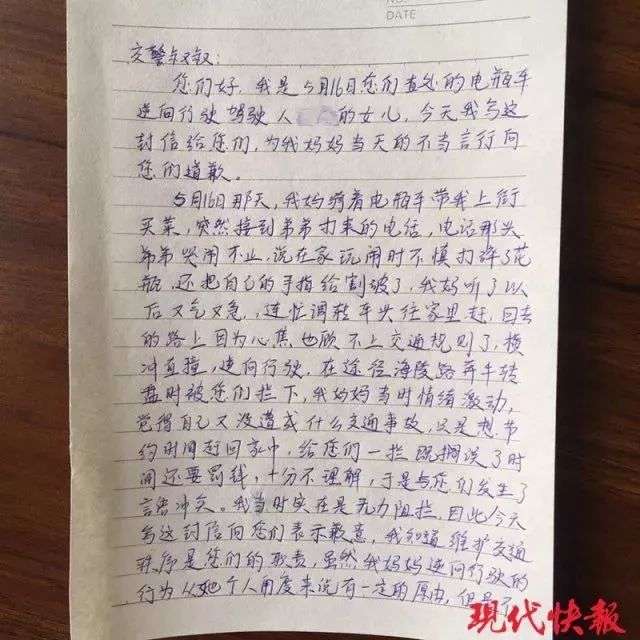 NO.
DATE
交警叔叔:
您们好,我是5月16日您们查处的电瓶车
逆向行驶驾驶人 的女儿,今天我写这
封信给您们,为我妈妈当天的不当言行向
您们道歉。
5月16日那天,我妈骑着电瓶车带我上街
买菜,突然接到弟弟打来的电话,电话那头
弟弟哭闹不止,说在家玩闹时不慎打碎了花
瓶,还把自己的手指给割破了,我妈听了以
后又气又急,连忙调转车头往家里赶,回去
的路上因为心焦也顾不上交通规则了,横
冲直撞,逆向行驶,在途径海陵路奔牛转
盘时被您们拦下,我妈妈当时情绪激动,
觉得自己又没造成什么交通事故,只是想节
约时间赶回家中,给您们一拦既担误了时
间还要罚钱,十分不理解,于是与您们发生了
言语冲突。我当时实在是无力阻拦,因此今天
写这封信向您们表示歉意,我知道维护交通
秩序是您们的职责,虽然我妈妈逆向行驶的
行为从她个人角度来说有一定的原由,但是
现代快报